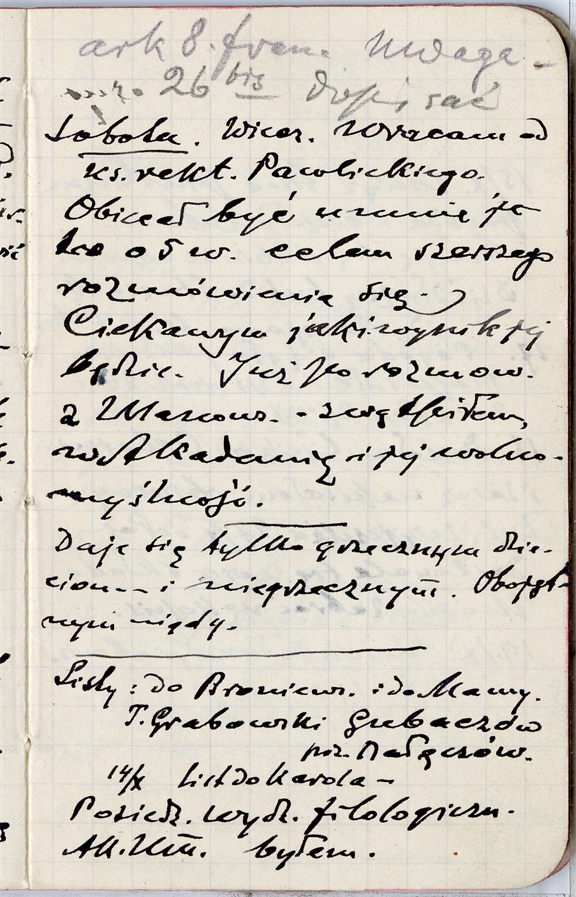 ark 8. Uwaga -
26 bis dopisać
Sobota. Wiecz. Wracam od
ks. rekt. Pawlickiego.
Obiecał być u mnie ju
tro o 5 w. celem szerszego
rozmówienia się.
Ciekawym jaki wynik jej
będzie. Już po rozmow.
z Marows. - zwątpiłem,
w Akademię i jej wolno-
myślność.
Daje się tylko grzecznym dzie-
ciom -- i niegrzecznym. Obojęt-
nym nigdy.
Listy: do Broniews. i do Mamy.
T. Grabowski Grabaczów
Nałęczów.
14/X List do Karola -
Posiedz. wydz. filologiczn.
Ak. Um. byłem.